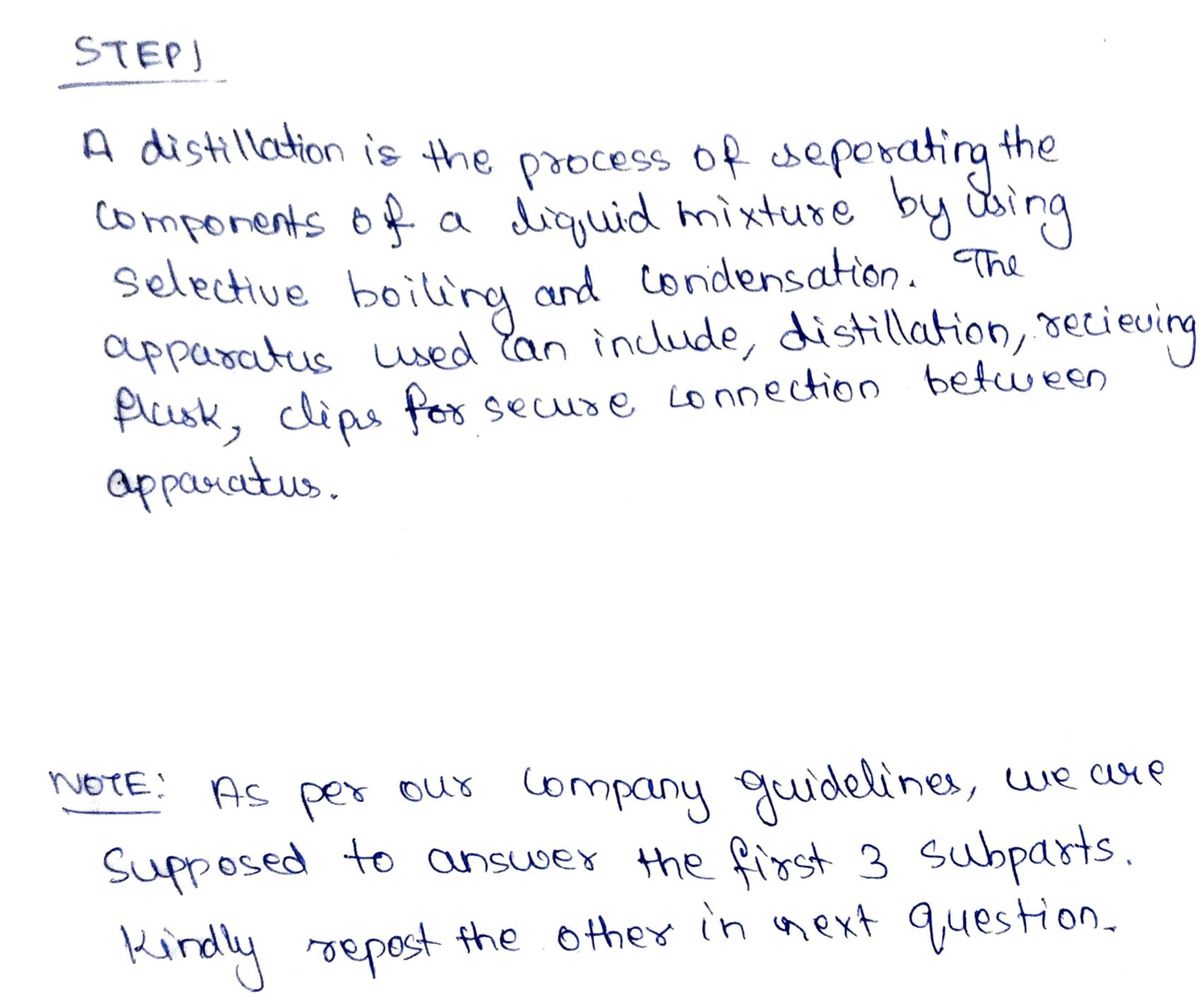 STEP1
A distillation is the process of seperating the
components of a liquid mixture by using
selective boiling and condensation. The
apparatus used can include, distillation, recieving
flask, clips for secure connection between
apparatus.
NOTE: As per our company guidelines, we are
supposed to answer the first 3 subparts.
Kindly repost the other in next question.